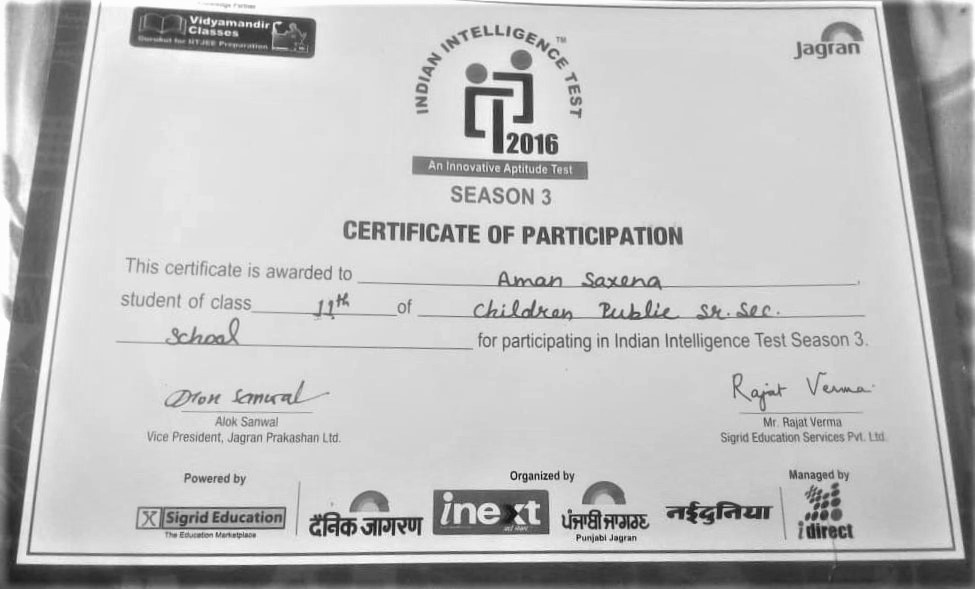 Knowledge Partner
Vidyamandir
Classes
Gurukul for IITJEE Preparation
Jagran
INDIAN INTELLIGENCE TEST™
2016
An Innovative Aptitude Test
SEASON 3
CERTIFICATE OF PARTICIPATION
This certificate is awarded to Aman Saxena
student of class 11th of Children Public Sr. Sec.
School for participating in Indian Intelligence Test Season 3.
Rajat Verma
Alok Sanwal
Mr. Rajat Verma
Vice President, Jagran Prakashan Ltd.
Sigrid Education Services Pvt. Ltd.
Powered by
Organized by
Managed by
X Sigrid Education
The Education Marketplace
दैनिक जागरण
inext
ਪੰਜਾਬੀ ਜਾਗਰਣ
Punjabi Jagran
नईदुनिया
idirect